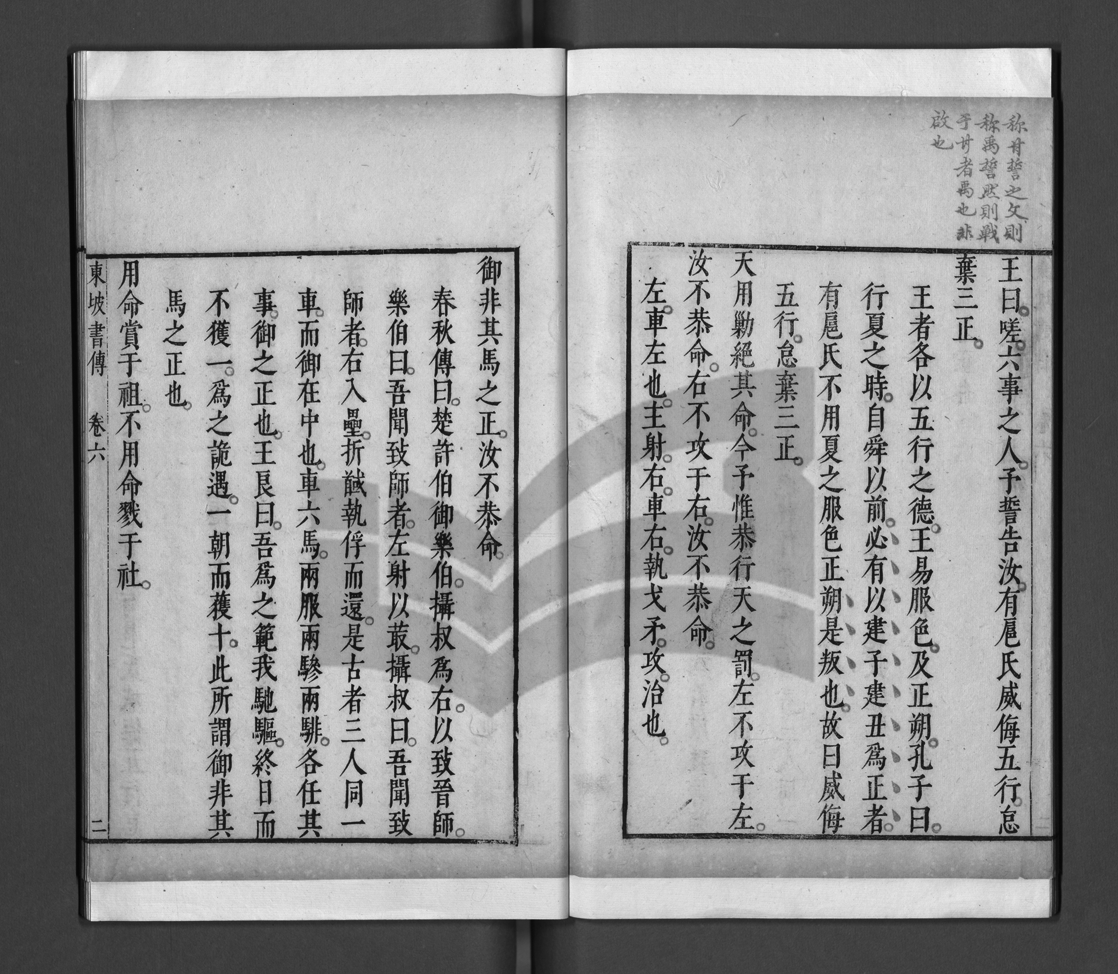 称甘誓之文則
称禹誓然則戰
于甘者禹也非
啟也
王曰。嗟。六事之人。予誓告汝。有扈氏威侮五行。怠
棄三正。
王者各以五行之德。王易服色。及正朔。孔子曰。
行夏之時。自舜以前。必有以建子建丑爲正者。
有扈氏不用夏之服色正朔。是叛也。故曰威侮
五行。怠棄三正。
天用勦絕其命。今予惟恭行天之罰。左不攻于左。
汝不恭命。右不攻于右。汝不恭命。
左。車左也。主射。右。車右。執戈矛。攻。治也。
御非其馬之正。汝不恭命。
春秋傳曰。楚許伯御樂伯。攝叔爲右。以致晉師。
樂伯曰。吾聞致師者。左射以菆。攝叔曰。吾聞致
師者。右入壘。折馘執俘而還。是古者三人同一
車。而御在中也。車六馬。兩服兩驂兩騑。各任其
事。御之正也。王良曰。吾爲之範我馳驅。終日而
不獲一。爲之詭遇。一朝而獲十。此所謂御非其
馬之正也。
用命賞于祖。不用命戮于社。
東坡書傳 卷六 二